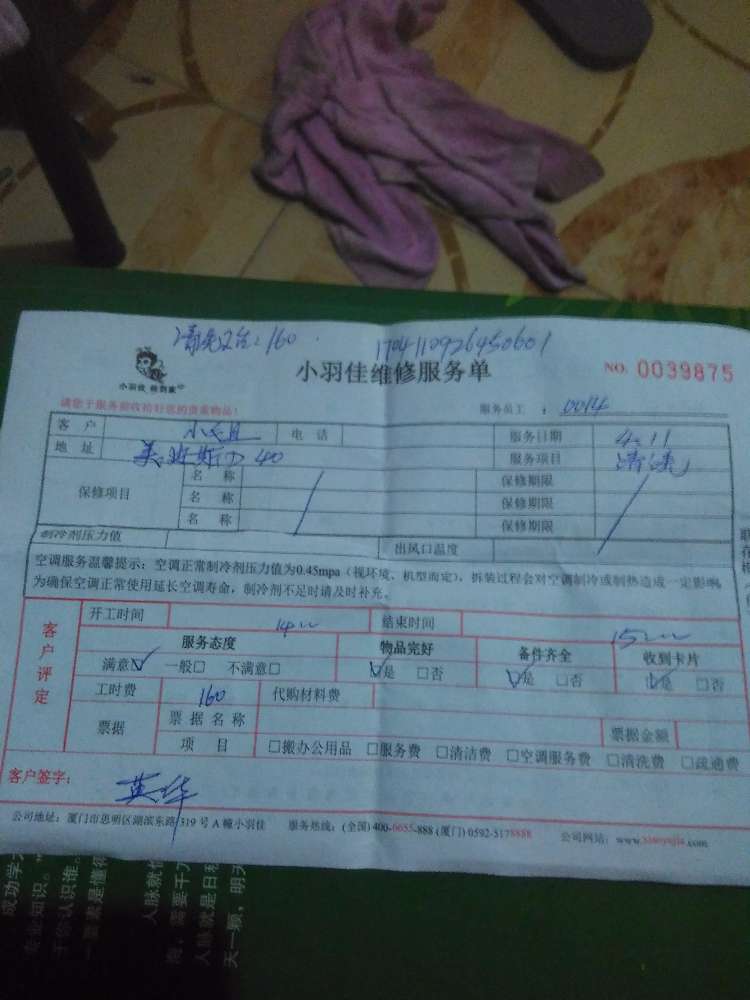 160 1704110926450601
小羽佳 佳到家
小羽佳维修服务单 NO. 0039875
请您于服务前收拾好您的贵重物品！ 服务员工 ： 0014
客 户 电 话 服务日期 4.11
地 址 40 服务项目 清洗
保修项目 名 称 保修期限
名 称 保修期限
名 称 保修期限
制冷剂压力值 出风口温度
空调服务温馨提示：空调正常制冷剂压力值为0.45mpa（视环境、机型而定），拆装过程会对空调制冷或制热造成一定影响，
为确保空调正常使用延长空调寿命，制冷剂不足时请及时补充。
客户评定
开工时间 结束时间
服务态度 物品完好 备件齐全 收到卡片
满意☑ 一般□ 不满意□ ☑是 □否 ☑是 □否 ☑是 □否
工时费 160 代购材料费
票据 票 据 名 称 票据金额
项 目 □搬办公用品 □服务费 □清洁费 □空调服务费 □清洗费 □疏通费
客户签字： 英华
公司地址：厦门市思明区湖滨东路319号A幢小羽佳 服务热线：(全国) 400-0055-888 (厦门) 0592-5178888 公司网站：www.xiaoyujia.com